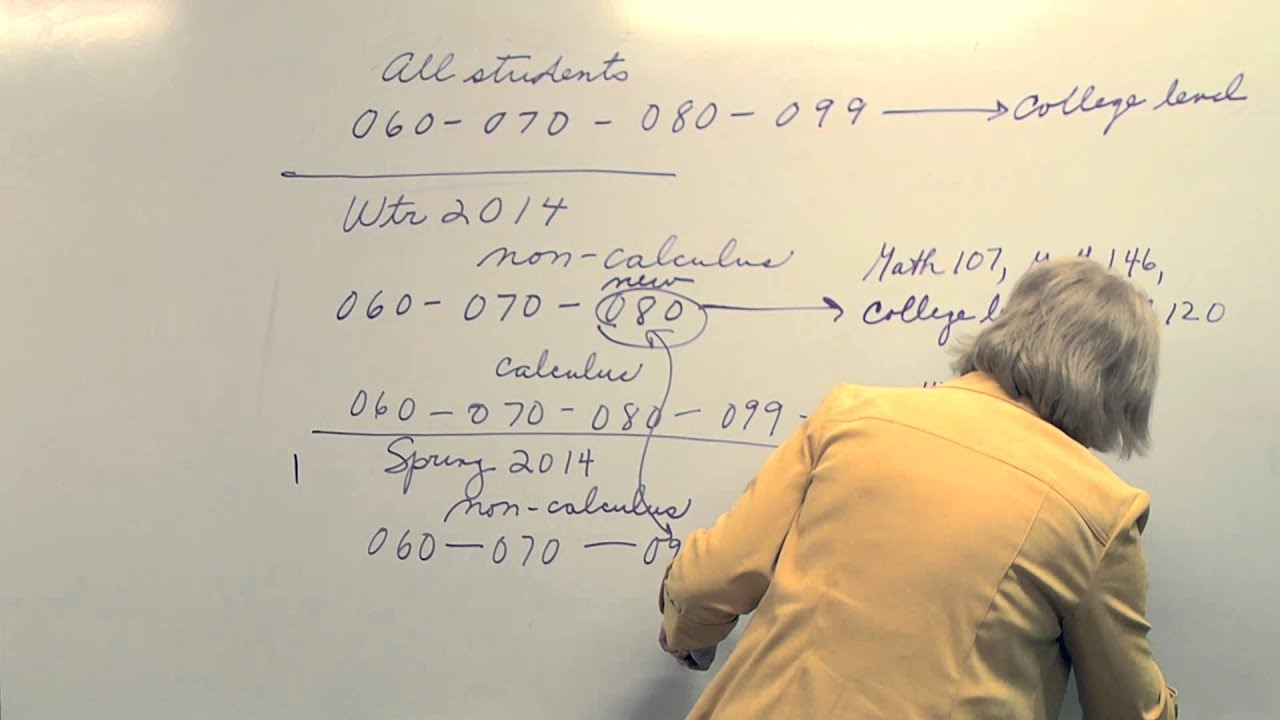 All students
060 - 070 - 080 - 099 → College level
Wtr 2014
non-calculus
new
Math 107, 146,
060 - 070 - 080 → College 120
calculus
060 - 070 - 080 - 099 -
1 Spring 2014
non-calculus
060 - 070 - 09